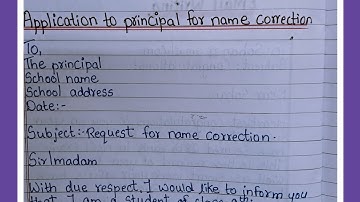 Application to principal for name correction
To,
The principal
School name
School address
Date:-
Subject:- Request for name correction.
Sir/madam
With due respect, I would like to inform you
that I am a student of class 9th